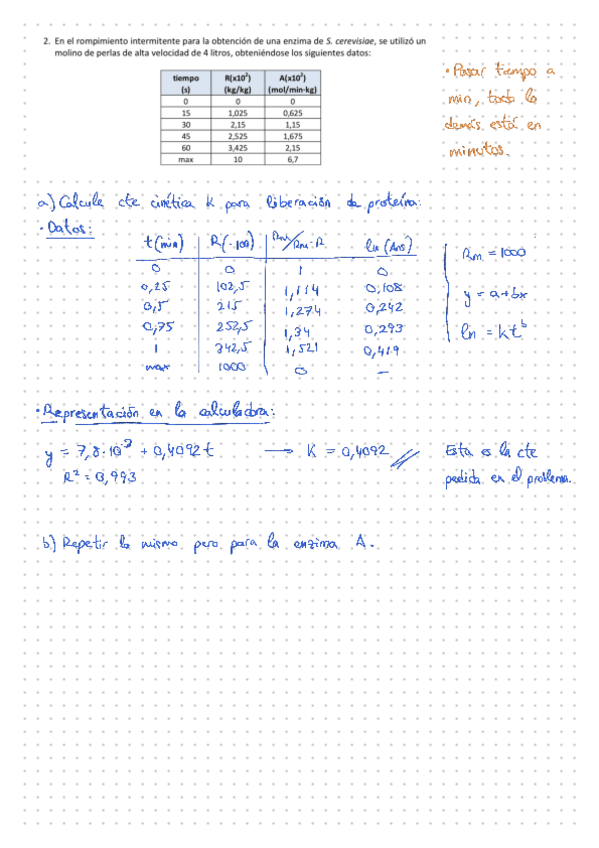 2. En el rompimiento intermitente para la obtención de una enzima de S. cerevisiae, se utilizó un
molino de perlas de alta velocidad de 4 litros, obteniéndose los siguientes datos:
tiempo (s) R(x10²) (kg/kg) A(x10²) (mol/min·kg)
0 0 0
15 1,025 0,625
30 2,15 1,15
45 2,525 1,675
60 3,425 2,15
max 10 6,7
· Pasar tiempo a
min, todo lo
demás está en
minutos.
a) Calcule cte cinética K para liberación de proteína:
· Datos:
t(min) R(·100) Rm/Rm-R ln(Ans)
0 0 1 0
0,25 102,5 1,114 0,108
0,5 215 1,274 0,242
0,75 252,5 1,34 0,293
1 342,5 1,521 0,419
max 1000 0 —
Rm = 1000
y = a+bx
ln = kt^b
· Representación en la calculadora:
y = 7,8·10⁻³ + 0,4092t → K = 0,4092
R² = 0,993
Esta es la cte
pedida en el problema.
b) Repetir lo mismo pero para la enzima A.